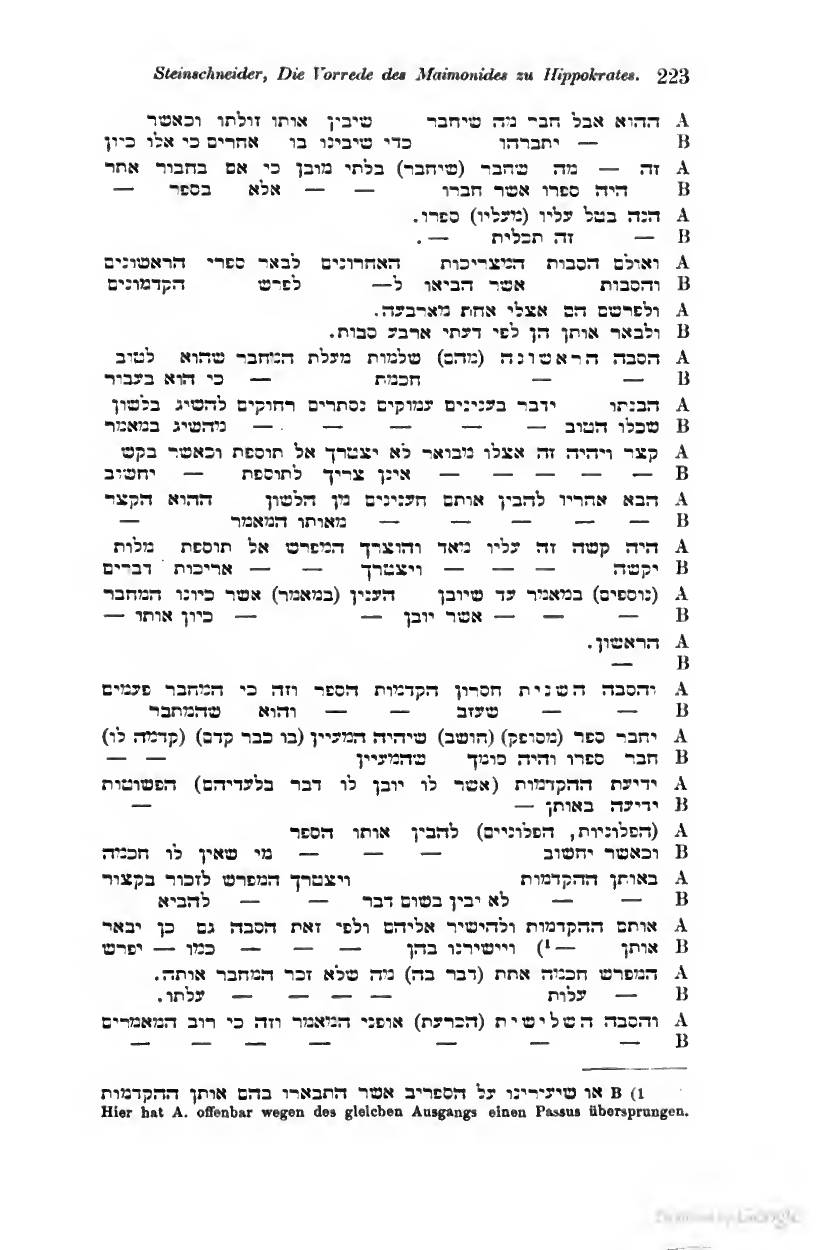 Steinschneider, Die Vorrede des Maimonides zu Hippokrates. 223
A ההוא אבל חבר מה שיחבר שיבין אותו זולתו וכאשר
B — יחברהו כדי שיבינו בו אחרים כי אלו כיון
A זה — מה שחבר (שיחבר) בלתי מובן כי אם בחבור אחר
B היה ספרו אשר חברו — — אלא בספר —
A הנה בטל עליו (מעליו) ספרו.
B — זה תכלית —.
A ואולם הסבות המצריכות האחרונים לבאר ספרי הראשונים
B והסבות אשר הביאו ל— לפרש הקדמונים
A ולפרשם הם אצלי אחת מארבעה.
B ולבאר אותן הן לפי דעתי ארבע סבות.
A הסבה הראשונה (מהם) שלמות מעלת המחבר שהוא לטוב
B — — חכמת — כי הוא בעבור
A הבנתו ידבר בענינים עמוקים נסתרים רחוקים להשיג בלשון
B שכלו הטוב — — — — — מהשיג במאמר
A קצר ויהיה זה אצלו מבואר לא יצטרך אל תוספת וכאשר בקש
B — — — — — אינן צריך לתוספת — יחשוב
A הבא אחריו להבין אותם הענינים מן הלשון ההוא הקצר
B — — — — — מאותו המאמר —
A היה קשה זה עליו מאד והוצרך המפרש אל תוספת מלות
B יקשה — — — ויצטרך — — אריכות דברים
A (נוספים) במאמר עד שיובן הענין (במאמר) אשר כיונו המחבר
B — — — אשר יובן — — כיון אותו —
A הראשון.
B —
A והסבה השנית חסרון הקדמות הספר וזה כי המחבר פעמים
B — — שעזב — — והוא שהמחבר
A יחבר ספר (מסופק) (חושב) שיהיה המעיין (בו כבר קדם) (קדמה לו)
B חבר ספרו והיה סומך שהמעיין — —
A ידיעת ההקדמות (אשר לו יובן לו דבר בלעדיהם) הפשוטות
B ידיעה באותן — —
A (הפלוניות, הפלוניים) להבין אותו הספר
B וכאשר יחשוב — — — מי שאין לו חכמה
A באותן ההקדמות ויצטרך המפרש לזכור בקצור
B — — לא יבין בשום דבר — — להביא
A אותם ההקדמות ולהישיר אליהם ולפי זאת הסבה גם כן יבאר
B אותן —¹) ויישירנו בהן — — — כמו — יפרש
A המפרש חכמה אחת (דבר בה) מה שלא זכר המחבר אותה.
B — עלות — — — — עלתו.
A והסבה השלישית (הכרעת) אופני המאמר וזה כי רוב המאמרים
B — — — — — — —
1) B או שיעירינו על הספריב אשר התבארו בהם אותן ההקדמות
Hier hat A. offenbar wegen des gleichen Ausgangs einen Passus übersprungen.